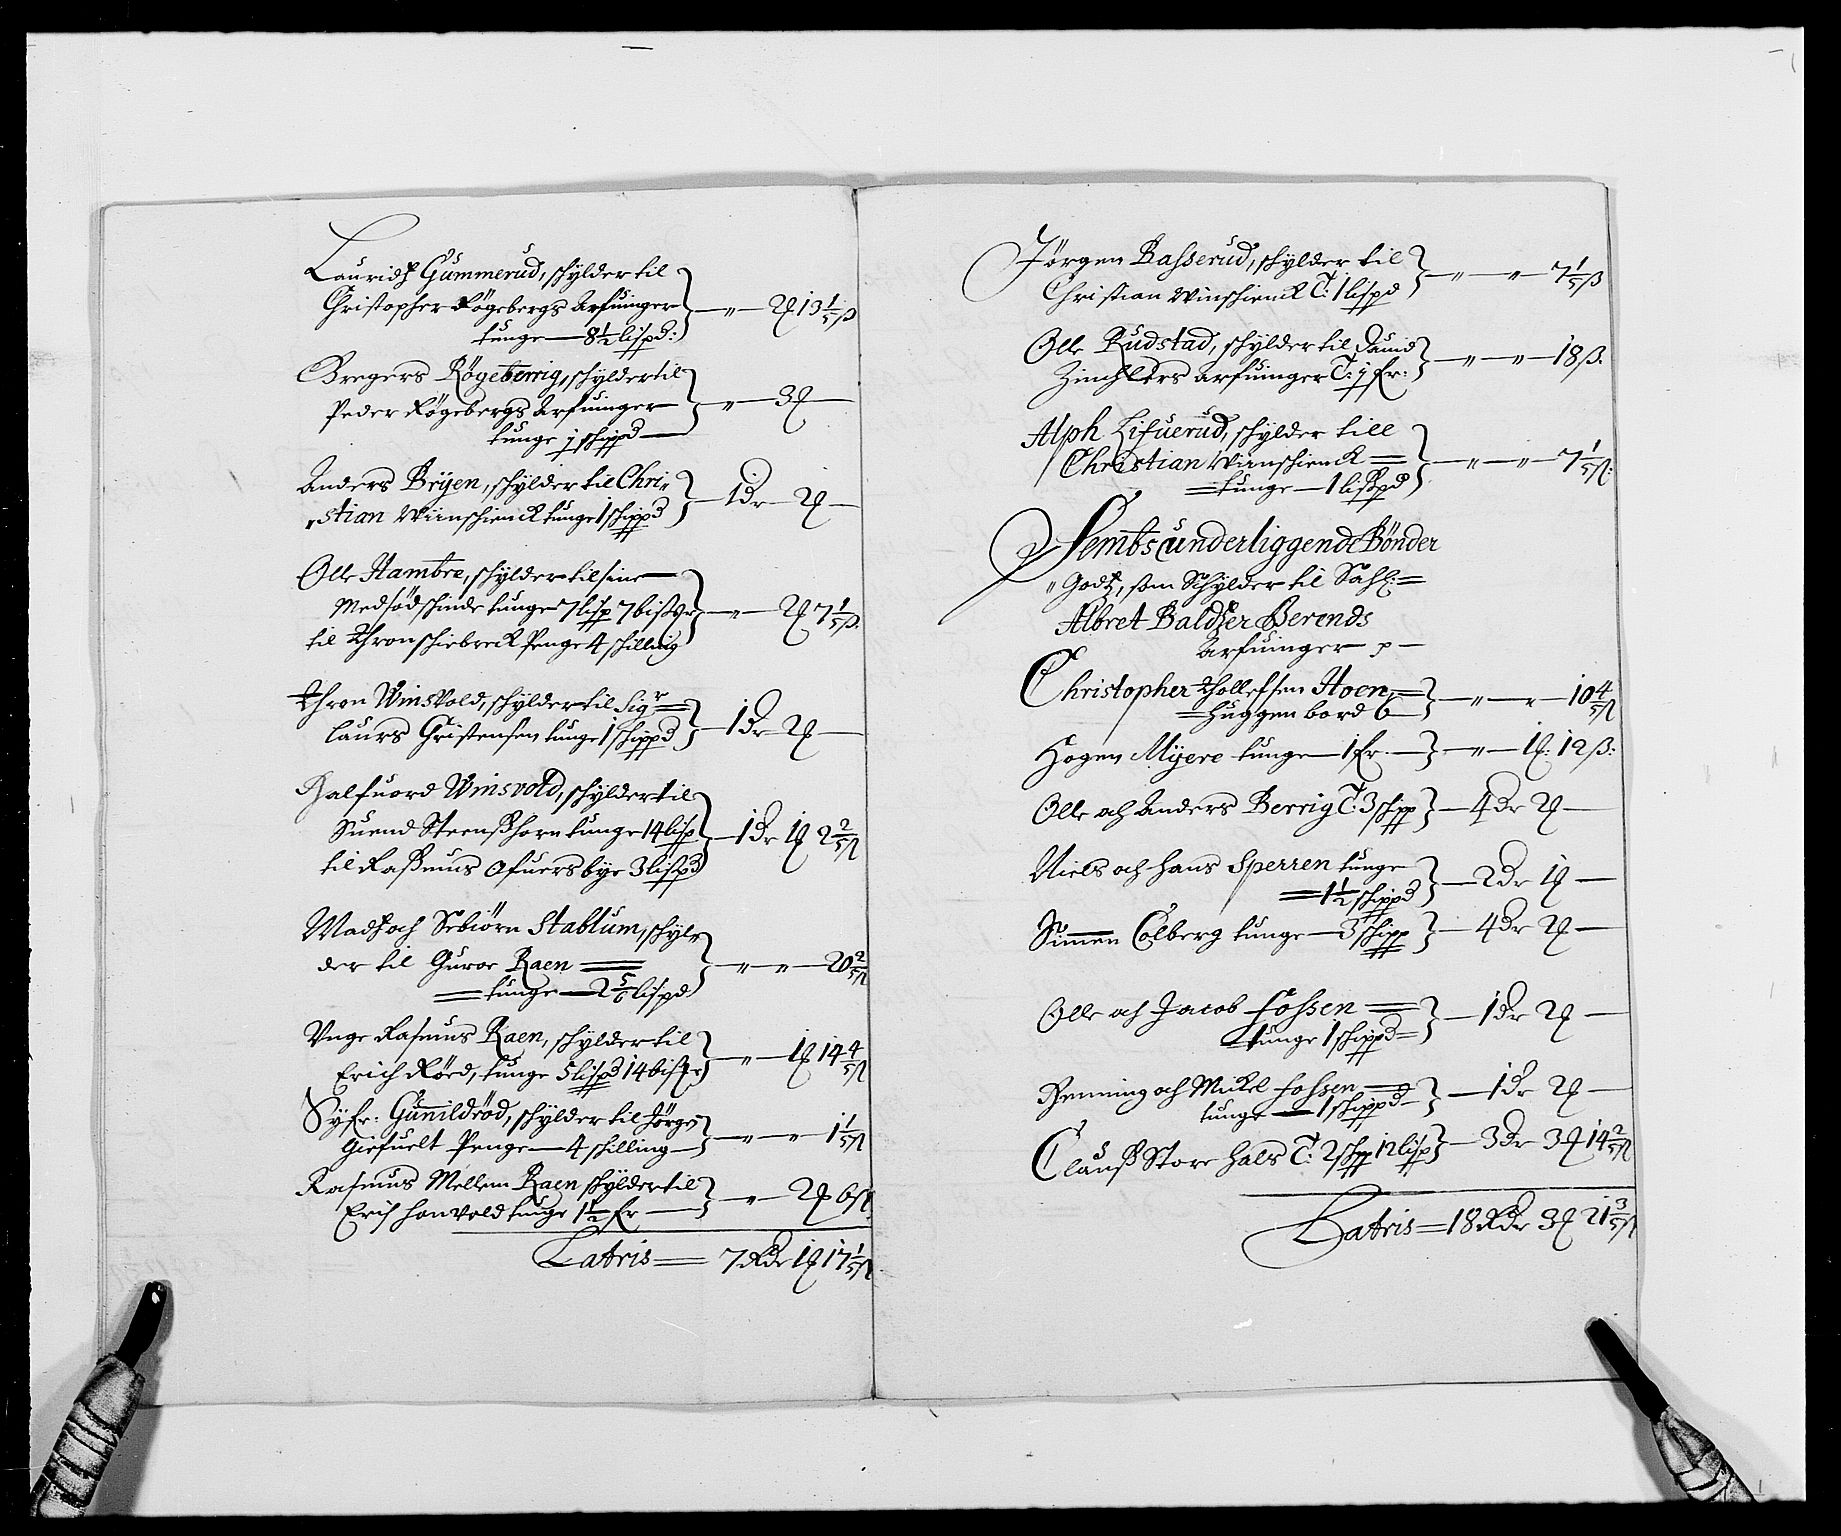 Lauridz Gummerud, schylder til
Christopher Røgebergs Arfuinger
tunge — 8½ lispd: } — „ — 2 ꝗ 13 1/5 ß
Gregers Røgeberrig, schylder til
Peder Røgebergs Arfuinger
tunge j schippd — } „ — 3 ꝗ —
Anders Bryen, schylder til Chri„
„stian Wiinschienck tunge 1 schippd } — 1 dr — 2 ꝗ —
Olle Hambre, schylder til sine
Medsødschinde tunge 7 lisp 7 bismr
til Thron schiebreck Penge 4 schilling } — „ — 2 ꝗ 7 1/5 ß.
Thron Winsvold, schylder til Sigr =
Laurs Christensen tunge 1 schippd } — 1 dr 2 ꝗ —
Halfuord Winsvold, schylder til
Suend Steenßhorn tunge 14 lisp
til Raßmus Ofuersbye 3 lispd } — 1 dr 1 ꝗ 2 2/5 ß
Madz och Sebiørn Stablum, schyl„
der til Guroe Raen =
= tunge — 2 5/6 lispd } „ „ — 20 2/5 ß
Unge Rasmus Raen, schylder til
Erich Røed, tunge 5 lispd 14 bismr } „ — 1 ꝗ 14 4/5 ß
Syfr: Gunnildrød, schylder til Jørgen
Giefuelt Penge — 4 schilling — } — „ — „ — 1 1/5 ß
Rasmus Mellem Raen schylder til
Erich Hanvold tunge 1½ fr — } — „ — 2 ꝗ 6 ß
Latris = 7 Rdr 1 ꝗ 17 1/5 ß
Jørgen Basserud, schylder til
Christian Winschienck T: 1 lispd } — „ — „ — 7 1/5 ß
Olle Rudstad, schylder til Dauid
Zinchlers arfuinger T: j fr: } — „ — „ — 18 ß.
Alph Lifuerud, schylder till
Christian Winschienck =
= tunge — 1 lißpd } — „ — „ — 7 1/5 ß:
Sembs underliggende Bønder
„Godz, som Schylder til Sahl: =
Albret Baldzer Berends
Arfuinger p —
Christopher Tholleffsen Hoen, =
= Huggen bord 6 — } — „ — „ — 10 4/5 ß
Hogen Myere tunge — 1 fr. — } — „ — 1 ꝗ: 12 ß:
Olle och Anders Berrig T: 3 schpp } — 4 dr 2 ꝗ —
Niels och Hans Sperren tunge
= 1½ schippd } — 2 dr 1 ꝗ —
Simen Colberg tunge — 3 schipp } — 4 dr 2 ꝗ —
Olle och Jacob Fossen =
= tunge 1 schippd = } — 1 dr 2 ꝗ —
Henning och Mickel Fossen =
tunge — 1 schippd — } — 1 dr 2 ꝗ —
Clauß Store Hals T: 2 schpp 12 lisp } — 3 dr 3 ꝗ 14 2/5 ß
Latris = 18 Rdr 3 ꝗ 21 3/5 ß